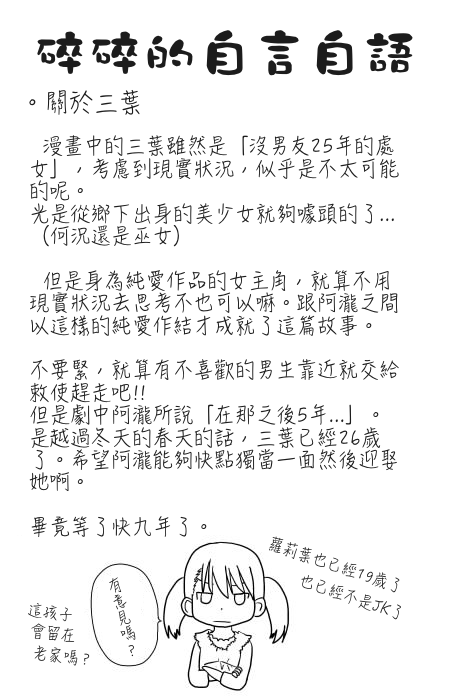 碎碎的自言自語
。關於三葉
漫畫中的三葉雖然是「沒男友25年的處
女」，考慮到現實狀況，似乎是不太可能
的呢。
光是從鄉下出身的美少女就夠噱頭的了...
(何況還是巫女)
但是身為純愛作品的女主角，就算不用
現實狀況去思考不也可以嘛。跟阿瀧之間
以這樣的純愛作結才成就了這篇故事。
不要緊，就算有不喜歡的男生靠近就交給
敕使趕走吧!!
但是劇中阿瀧所說「在那之後5年...」。
是越過冬天的春天的話，三葉已經26歲
了。希望阿瀧能夠快點獨當一面然後迎娶
她啊。
畢竟等了快九年了。
蘿莉葉也已經19歲了
也已經不是JK了
有意見嗎？
這孩子
會留在
老家嗎？